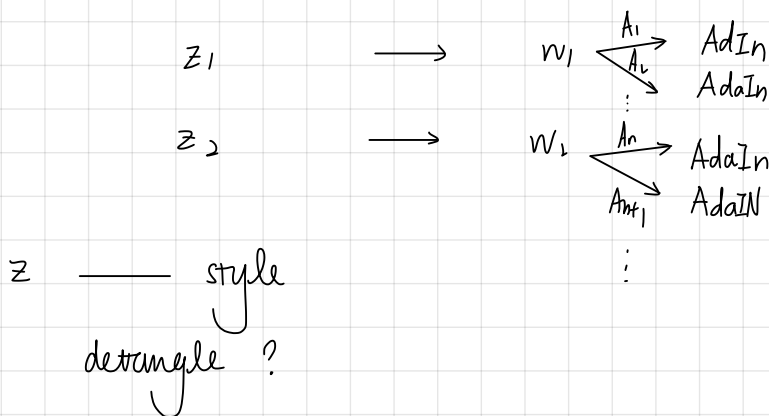 z1 → w1 A1 AdIn
A2 AdaIn
⋮
z2 → w2 An AdaIn
An+1 AdaIN
⋮
z — style
detangle ?